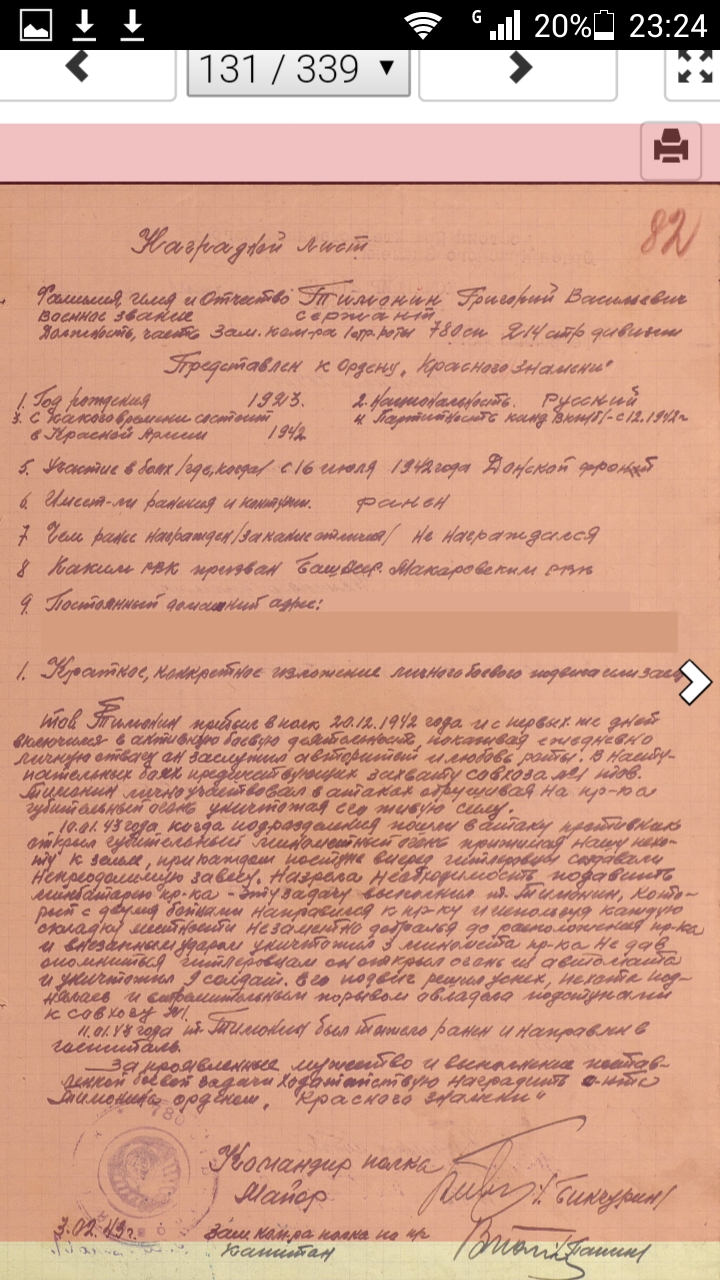 G 20% 23:24
131 / 339
82
Наградной лист
Фамилия, Имя и Отчество Тимонин Григорий Васильевич
Военное звание сержант
Должность, часть Зам. ком-ра 1 стр. роты 780 сп 214 стр дивизии
Представлен к Ордену „Красного Знамени"
1. Год рождения 1923. 2. Национальность. Русский
3. С какого времени состоит 4. Партийность канд ВКП/б/ - с 12.1942 г
в Красной Армии 1942
5. Участие в боях /где, когда/ с 16 июля 1942 года Донской фронт
6. Имеет-ли ранения и контузии. ранен
7 Чем ранее награжден /за какие отличия/ Не награждался
8 Каким РВК призван Макаровским РВК
9. Постоянный домашний адрес:
1. Краткое, конкретное изложение личного боевого подвига или засл
тов Тимонин прибыл в полк 20.12.1942 года и с первых же дней
включился в активную боевую деятельность, показывая ежедневно
личную отвагу он заслужил авторитет и любовь роты. В насту-
пательных боях предшествующих захвату совхоза №1 тов.
Тимонин лично участвовал в атаках обрушивая на пр-ка
губительный огонь уничтожая его живую силу.
10.01.43 года, когда подразделения пошли в атаку противник
открыл губительный минометный огонь прижимая нашу пехо-
ту к земле, при каждом поступе вперед гитлеровцы создавали
непреодолимую завесу. Назрела необходимость подавить
минбатарею пр-ка - эту задачу выполнил т. Тимонин, кото-
рый с двумя бойцами направился к пр-ку и используя каждую
складку местности незаметно добрался до расположения пр-ка
и внезапным ударом уничтожил 3 миномета пр-ка не дав
опомниться гитлеровцам он открыл огонь из автомата
и уничтожил 9 солдат. Его подвиг решил успех, пехота под-
нялась и стремительным порывом овладела подступами
к совхозу №1.
11.01.43 года т. Тимонин был тяжело ранен и направлен в
госпиталь.
За проявленные мужество и выполнение постав-
ленной боевой задачи ходатайствую наградить с-нта
Тимонина орденом „Красного Знамени"
Командир полка
Майор /Бикчурин/
3.02.43 г. Зам. ком-ра полка по пч
капитан /Панин/